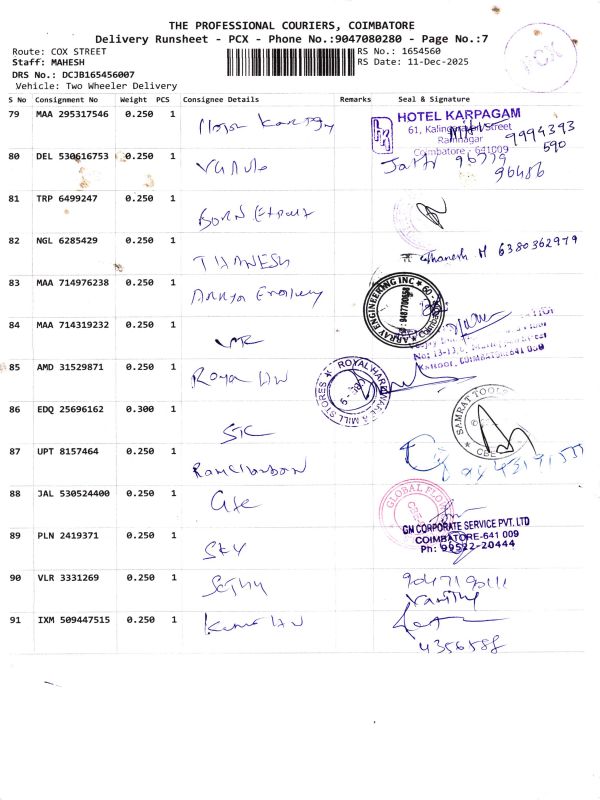 THE PROFESSIONAL COURIERS, COIMBATORE
Delivery Runsheet - PCX - Phone No.:9047080280 - Page No.:7
Route: COX STREET
RS No.: 1654560
Staff: MAHESH
RS Date: 11-Dec-2025
DRS No.: DCJB165456007
Vehicle: Two Wheeler Delivery
PCX
S No Consignment No Weight PCS Consignee Details Remarks Seal & Signature
79 MAA 295317546 0.250 1
HOTEL KARPAGAM
Ramnagar
Coimbatore - 641009
9994393
590
80 DEL 530616753 0.250 1
96779
96486
81 TRP 6499247 0.250 1 BORN Export
82 NGL 6285429 0.250 1 THANESH Thanesh M 6380362979
83 MAA 714976238 0.250 1
ARRAY ENGINEERING INC
84 MAA 714319232 0.250 1
85 AMD 31529871 0.250 1 Royal HW
ROYAL HARDWARE & MILL STORES
86 EDQ 25696162 0.300 1 STC
SAMRAT TOOLS
CBE
87 UPT 8157464 0.250 1 Ramchandran
88 JAL 530524400 0.250 1
GLOBAL
89 PLN 2419371 0.250 1 SKY
GN CORPORATE SERVICE PVT. LTD
COIMBATORE-641 009
Ph: 99522-20444
90 VLR 3331269 0.250 1
91 IXM 509447515 0.250 1
4356588